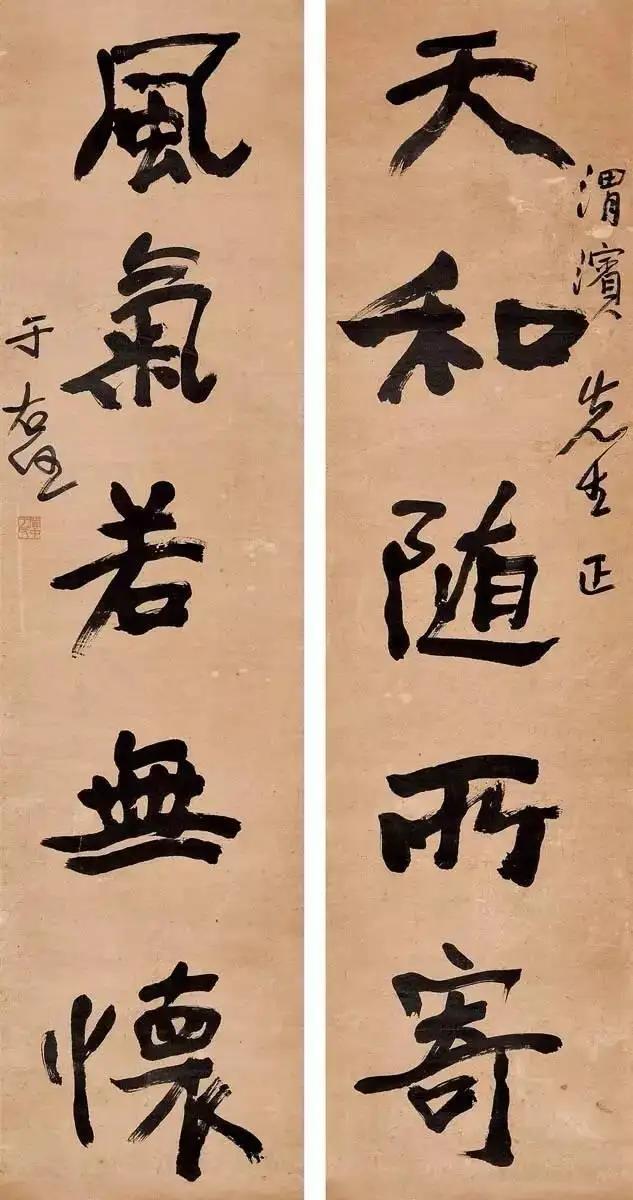 渭濱先生正
天和随所寄
風氣若無懷
于右任